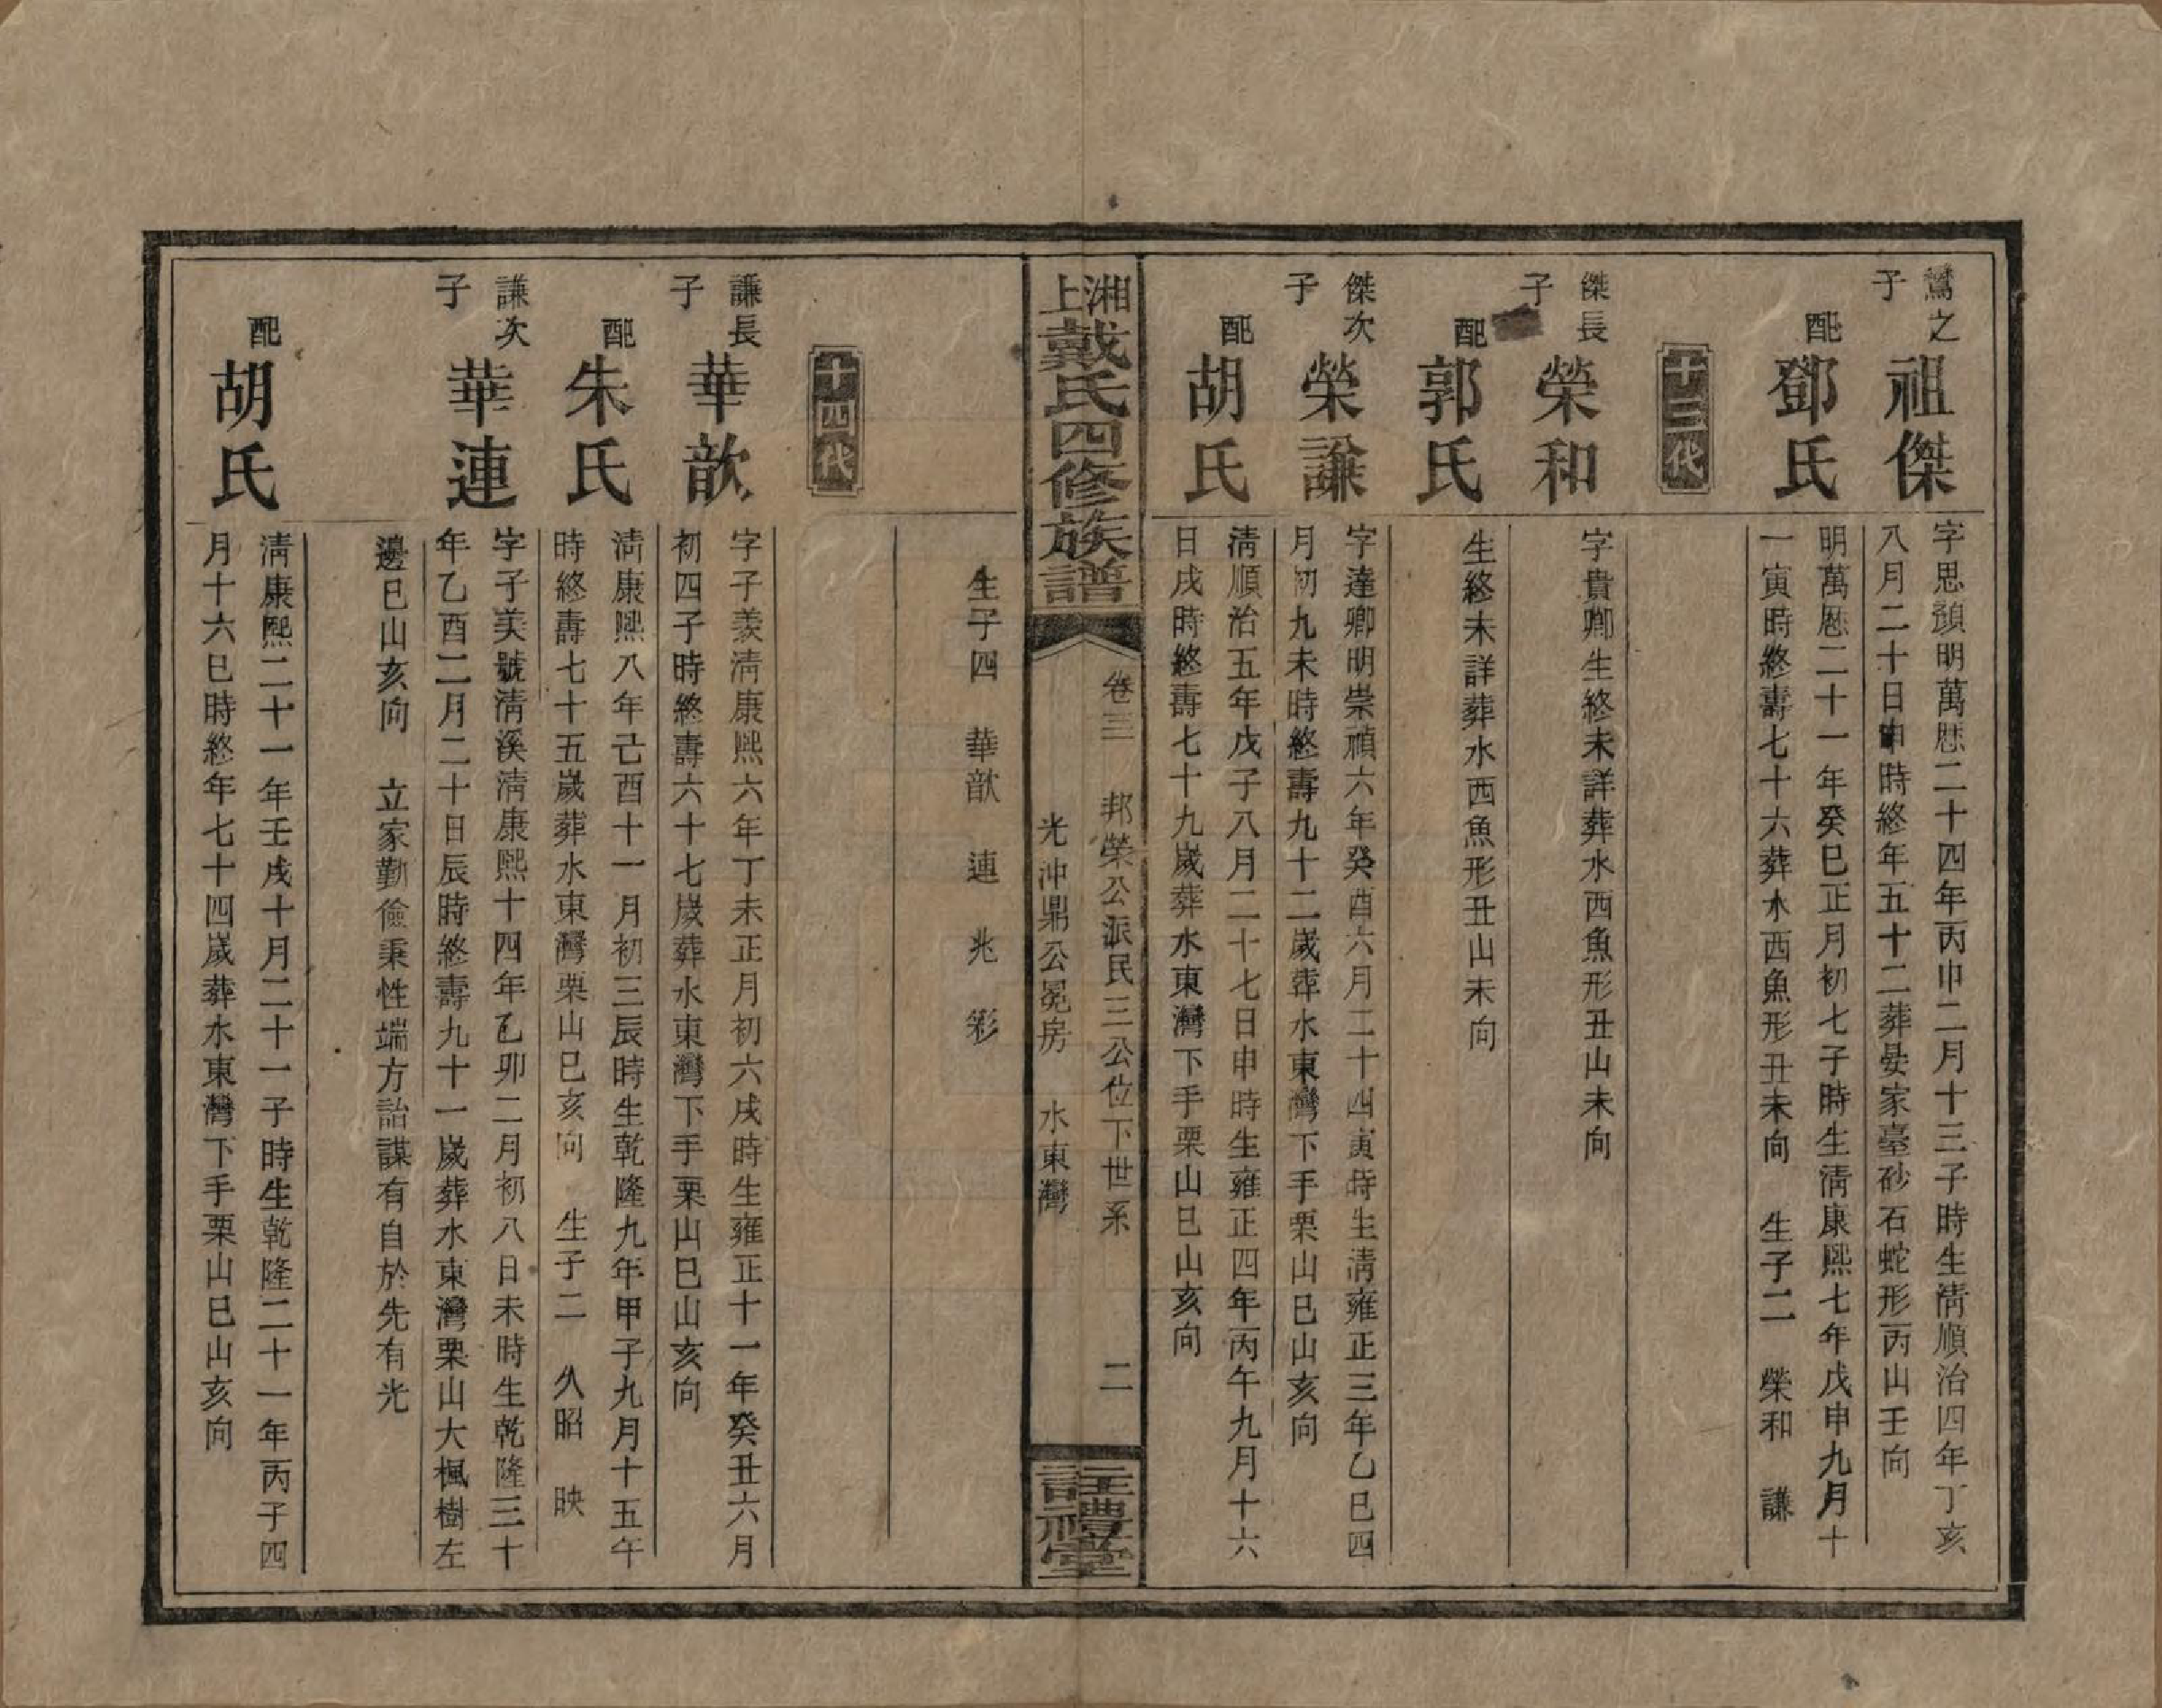 鸞之子
祖傑
字思頴明萬厯二十四年丙申二月十三子時生淸順治四年丁亥
八月二十日申時終年五十二葬晏家臺砂石蛇形丙山壬向
配
鄧氏
明萬厯二十一年癸巳正月初七子時生淸康熙七年戊申九月十
一寅時終壽七十六葬水西魚形丑未向 生子二 榮和 謙
十三代
傑長子
榮和
字貴卿生終未詳葬水西魚形丑山未向
配
郭氏
生終未詳葬水西魚形丑山未向
傑次子
榮謙
字達卿明崇禎六年癸酉六月二十四寅時生淸雍正三年乙巳四
月初九未時終壽九十二歲葬水東灣下手栗山巳山亥向
配
胡氏
淸順治五年戊子八月二十七日申時生雍正四年丙午九月十六
日戌時終壽七十九歲葬水東灣下手栗山巳山亥向
湘上戴氏四修族譜
卷三 邦榮公派民三公位下世系
光沖鼎公冕房 水東灣
二
註禮堂
生子四 華歆 連 兆 彩
十四代
謙長子
華歆
字子羨淸康熙六年丁未正月初六戌時生雍正十一年癸丑六月
初四子時終壽六十七歲葬水東灣下手栗山巳山亥向
配
朱氏
淸康熙八年己酉十一月初三辰時生乾隆九年甲子九月十五午
時終壽七十五歲葬水東灣栗山巳亥向 生子二 久昭 映
謙次子
華連
字子美號淸溪淸康熙十四年乙卯二月初八日未時生乾隆三十
年乙酉二月二十日辰時終壽九十一歲葬水東灣栗山大楓樹左
邊巳山亥向 立家勤儉秉性端方詒謀有自於先有光
配
胡氏
淸康熙二十一年壬戌十月二十一子時生乾隆二十一年丙子四
月十六巳時終年七十四歲葬水東灣下手栗山巳山亥向